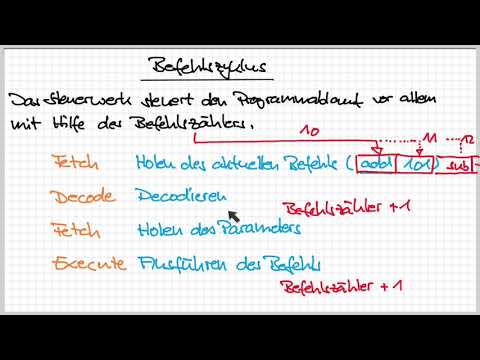 Befehlszyklus
Das Steuerwerk steuert den Programmablauf vor allem
mit Hilfe des Befehlszählers.
10 11 12
Fetch Holen des aktuellen Befehls ( add 101 ) sub
Decode Decodieren
Befehlszähler +1
Fetch Holen des Parameters
Execute Ausführen des Befehls
Befehlszähler +1